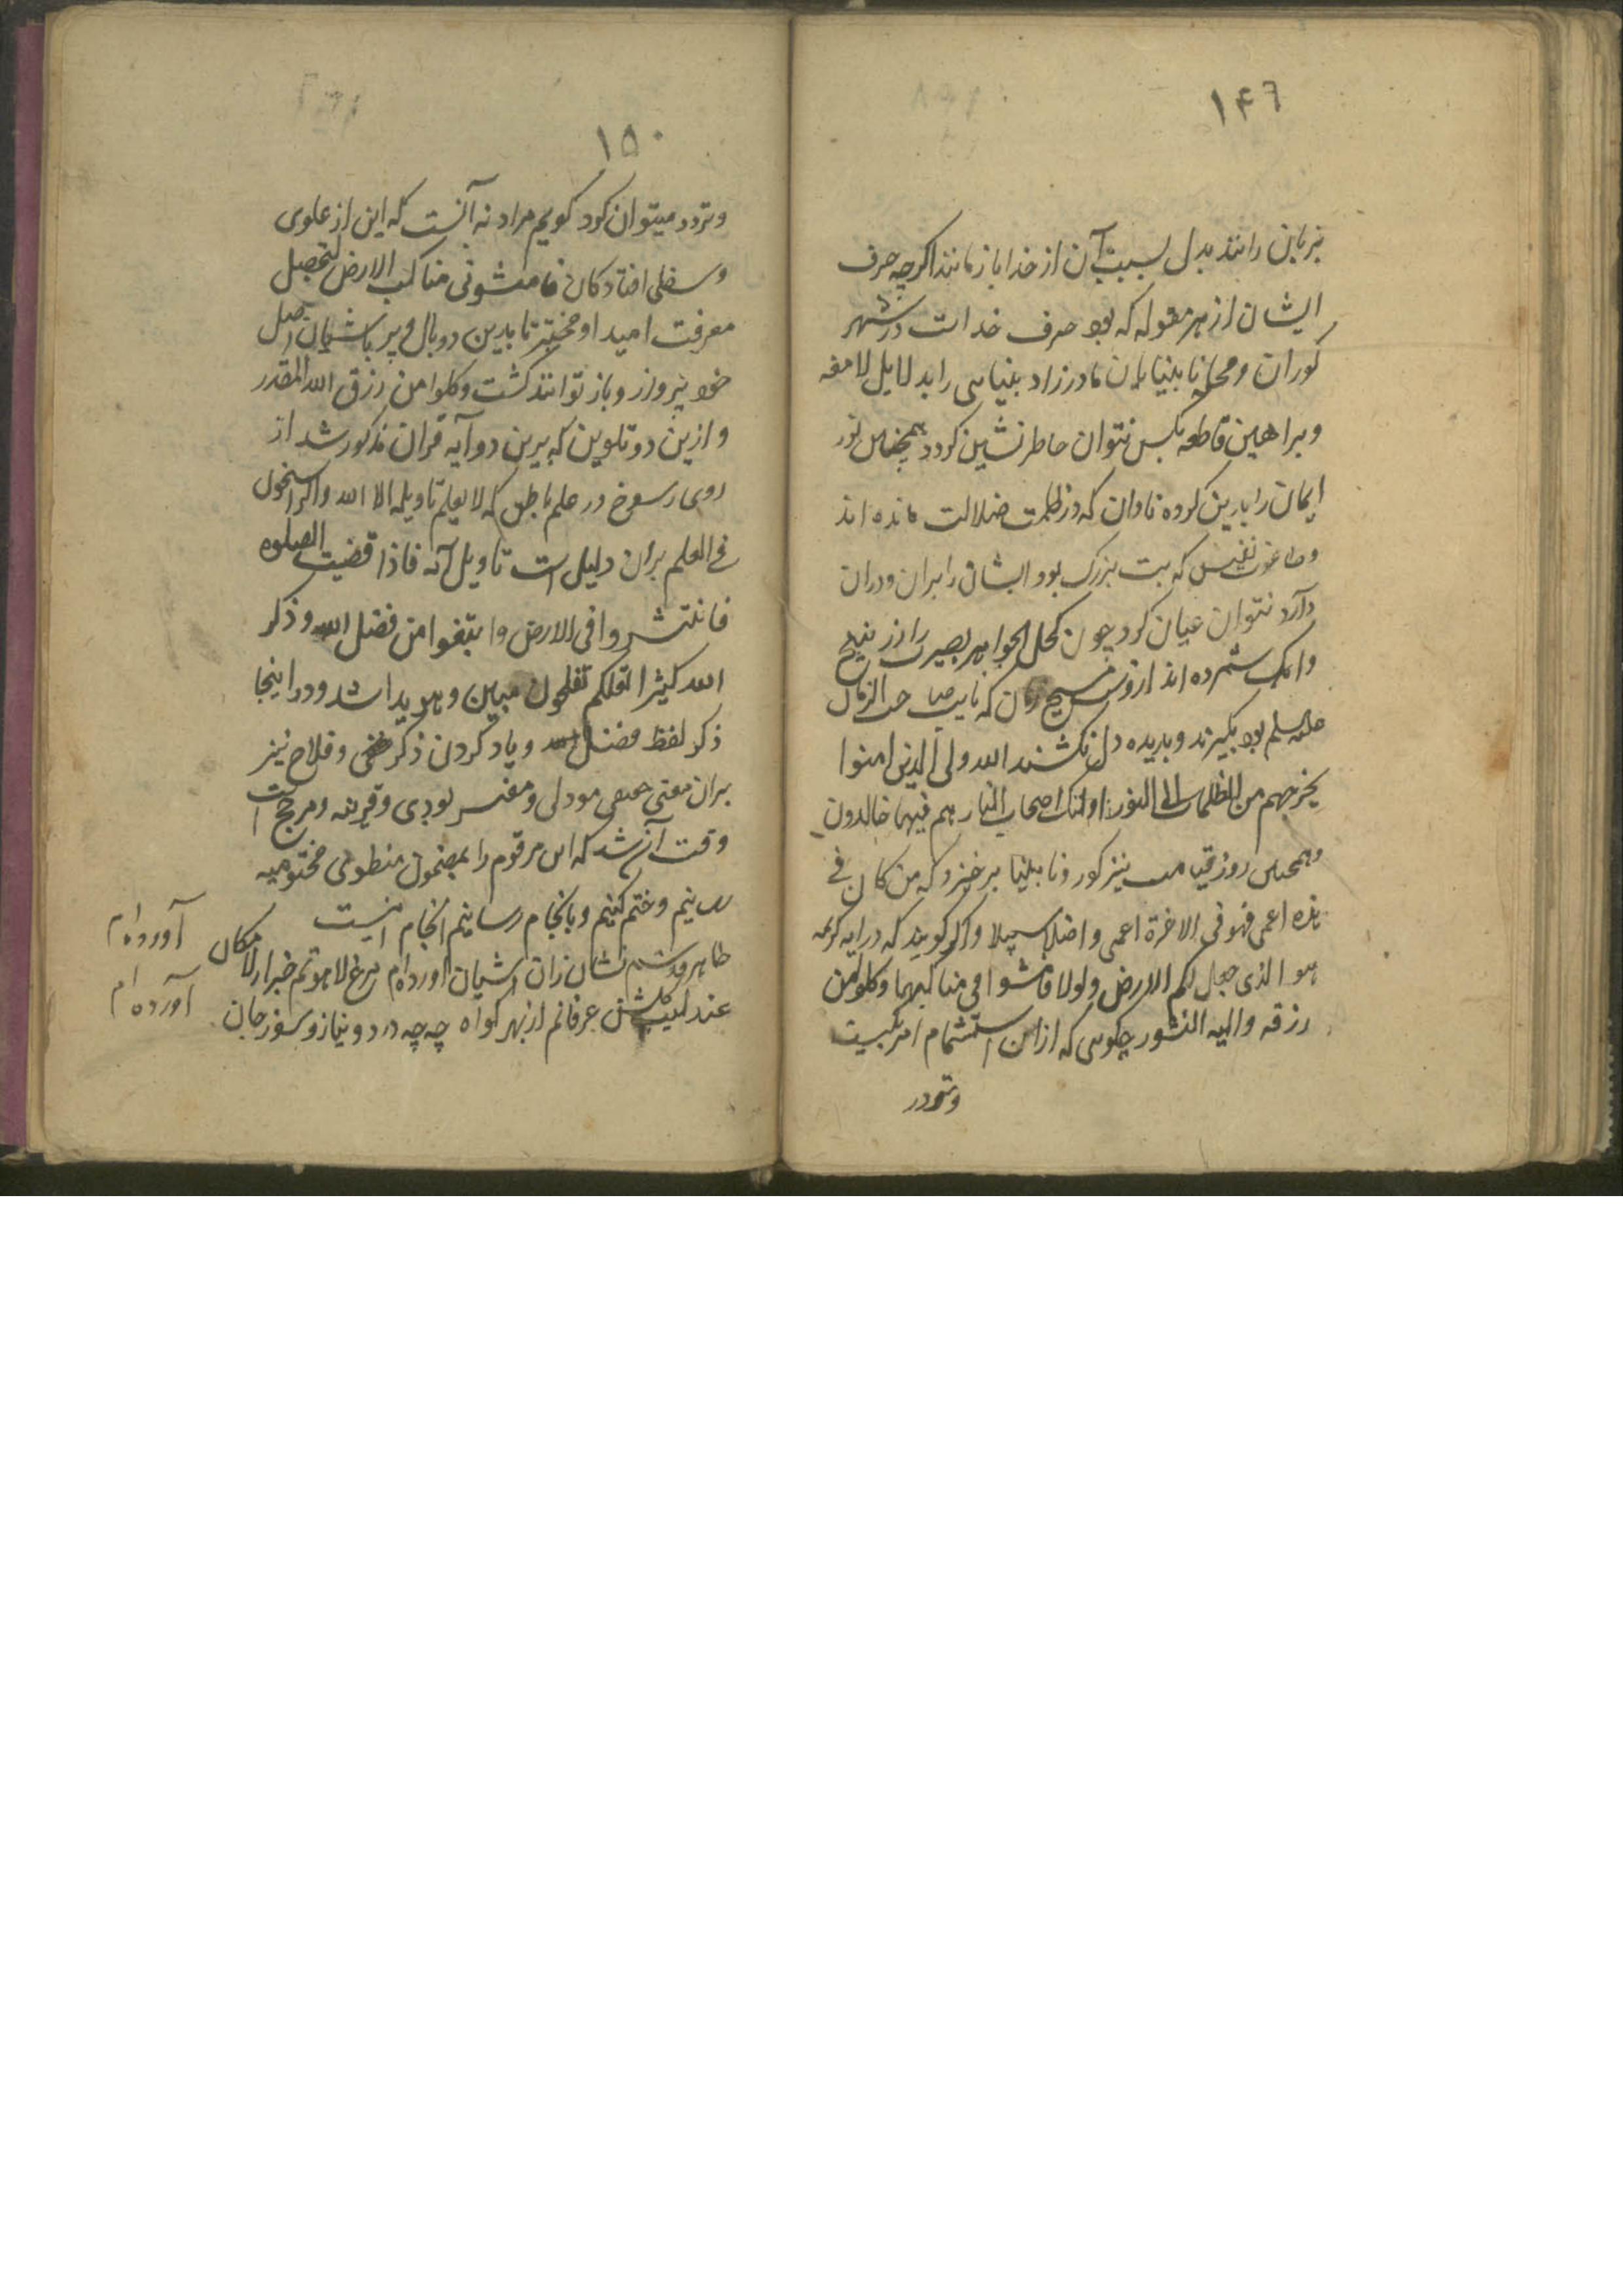 ۱۴۹
بزبان رانند بدل بسبب آن از خدا باز نمانند اگرچه حرف
ایشان از هر مقوله که بود صرف خداست در شهر
کوران و محله نابینایان مادرزاد بینایی را بدلایل لامعه
و براهین قاطعه بکس نتوان خاطرنشین کرد و همچنان نور
ایمان را باین کروه نادان که در ظلمت ضلالت مانده اند
و طاغوت نفس که بت بزرک بود ایشان را بران و دران
دارد نتوان عیان کرد چون کحل الجواهر بصیرت را از
وانک شمرده اند از و مسیح زمان که نایب صاحب الزمان
علیه سلم بود بکیرند و بدیده دل نکشند الله ولی الذین امنوا
یخرجهم من الظلمات الی النور اولئک اصحاب النار هم فیها خالدون
و همچنین روز قیامت نیز کور و نابینا برخیزد که من کان فی
هذه اعمی فهو فی الاخرة اعمی و اضل سبیلا و اکر کویند که در آیه کریمه
هو الذی جعل لکم الارض ذلولا فامشوا فی مناکبها و کلوا من
رزقه و الیه النشور چکویی که ازان استشمام امر بکسب
و تردد
۱۵۰
و تردد میتوان کرد کویم مراد نه آنست که این از علوی
و سفلی افتادکان فامشوا فی مناکب الارض لتحصیل
معرفت امید او مخبر تا بدین دو بال و پر باشیان اصل
خود پرواز و باز توانند کشت و کلوا من رزق الله المقدر
و ازین دو تلوین که برین دو آیه قران مذکور شد از
روی رسوخ در علم باطن که لا یعلم تاویله الا الله والراسخون
فی العلم بران دلیل است تاویل آیه فاذا قضیت الصلوه
فانتشروا فی الارض وابتغوا من فضل الله و ذکر
الله کثیرا لعلکم تفلحون مبین و هویدا شد و در اینجا
ذکر لفظ فضل الله و یاد کردن ذکر خفی و فلاح نیز
بران معنی حقیقی مودی و مفسر بودی و قرینه و مرجح است
وقت آن شد که این مرقوم را بمضمون منطوی مختومیه
رسانیم و ختم کنیم و بانجام رسانیم انجام اینست
طاهر قدسم نشان زان آشیان آورده ام مرغ لاهوتم خبر از لامکان آورده ام
عندلیب کلشن عرفانم از بهر کواه چه چه درد و نیاز و سوز جان آورده ام